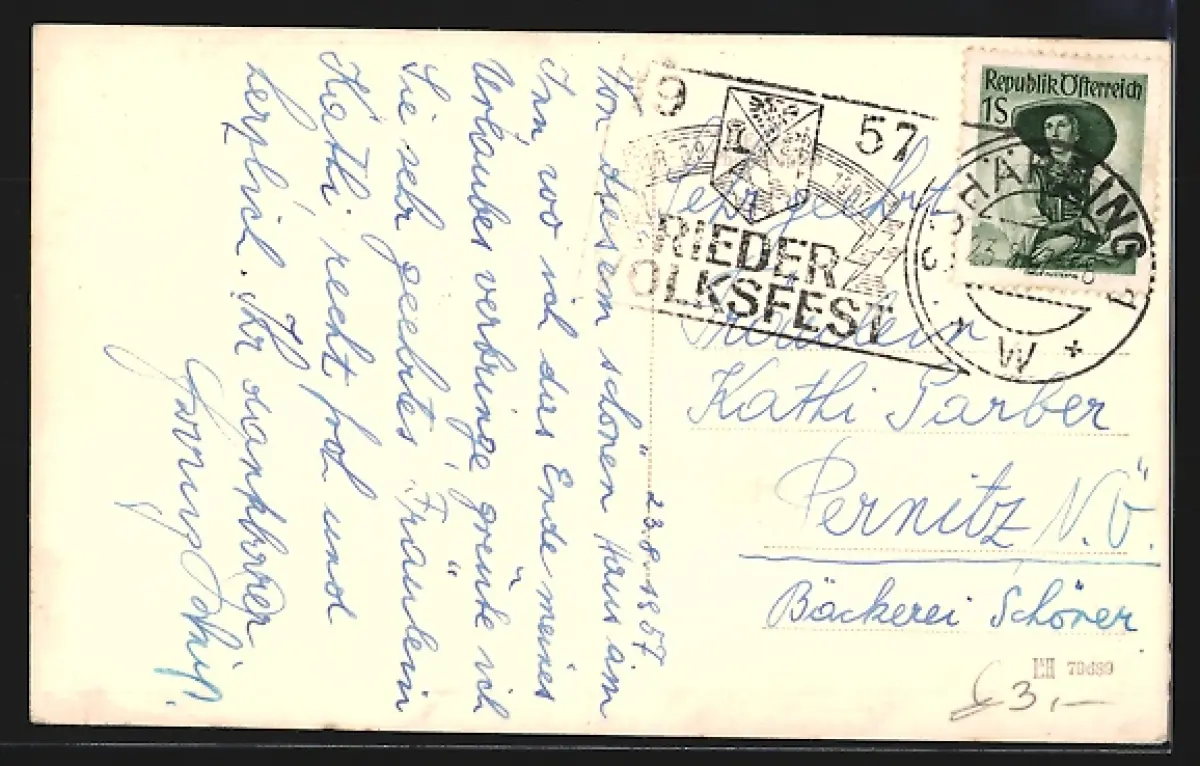 23.8.1957
Von diesem schönen Haus am
Inn, wo ich das Ende meines
Urlaubes verbringe, grüße ich
Sie sehr geehrtes Fräulein
Kathi recht froh und
herzlich. Ihr dankbarer
19 57
RIEDER
VOLKSFEST
Republik Österreich
1S
SCHÄRDING
W
Sehr geehrt.
Fräulein
Kathi Parber
Pernitz N.Ö.
Bäckerei Schörer
79689
3,—